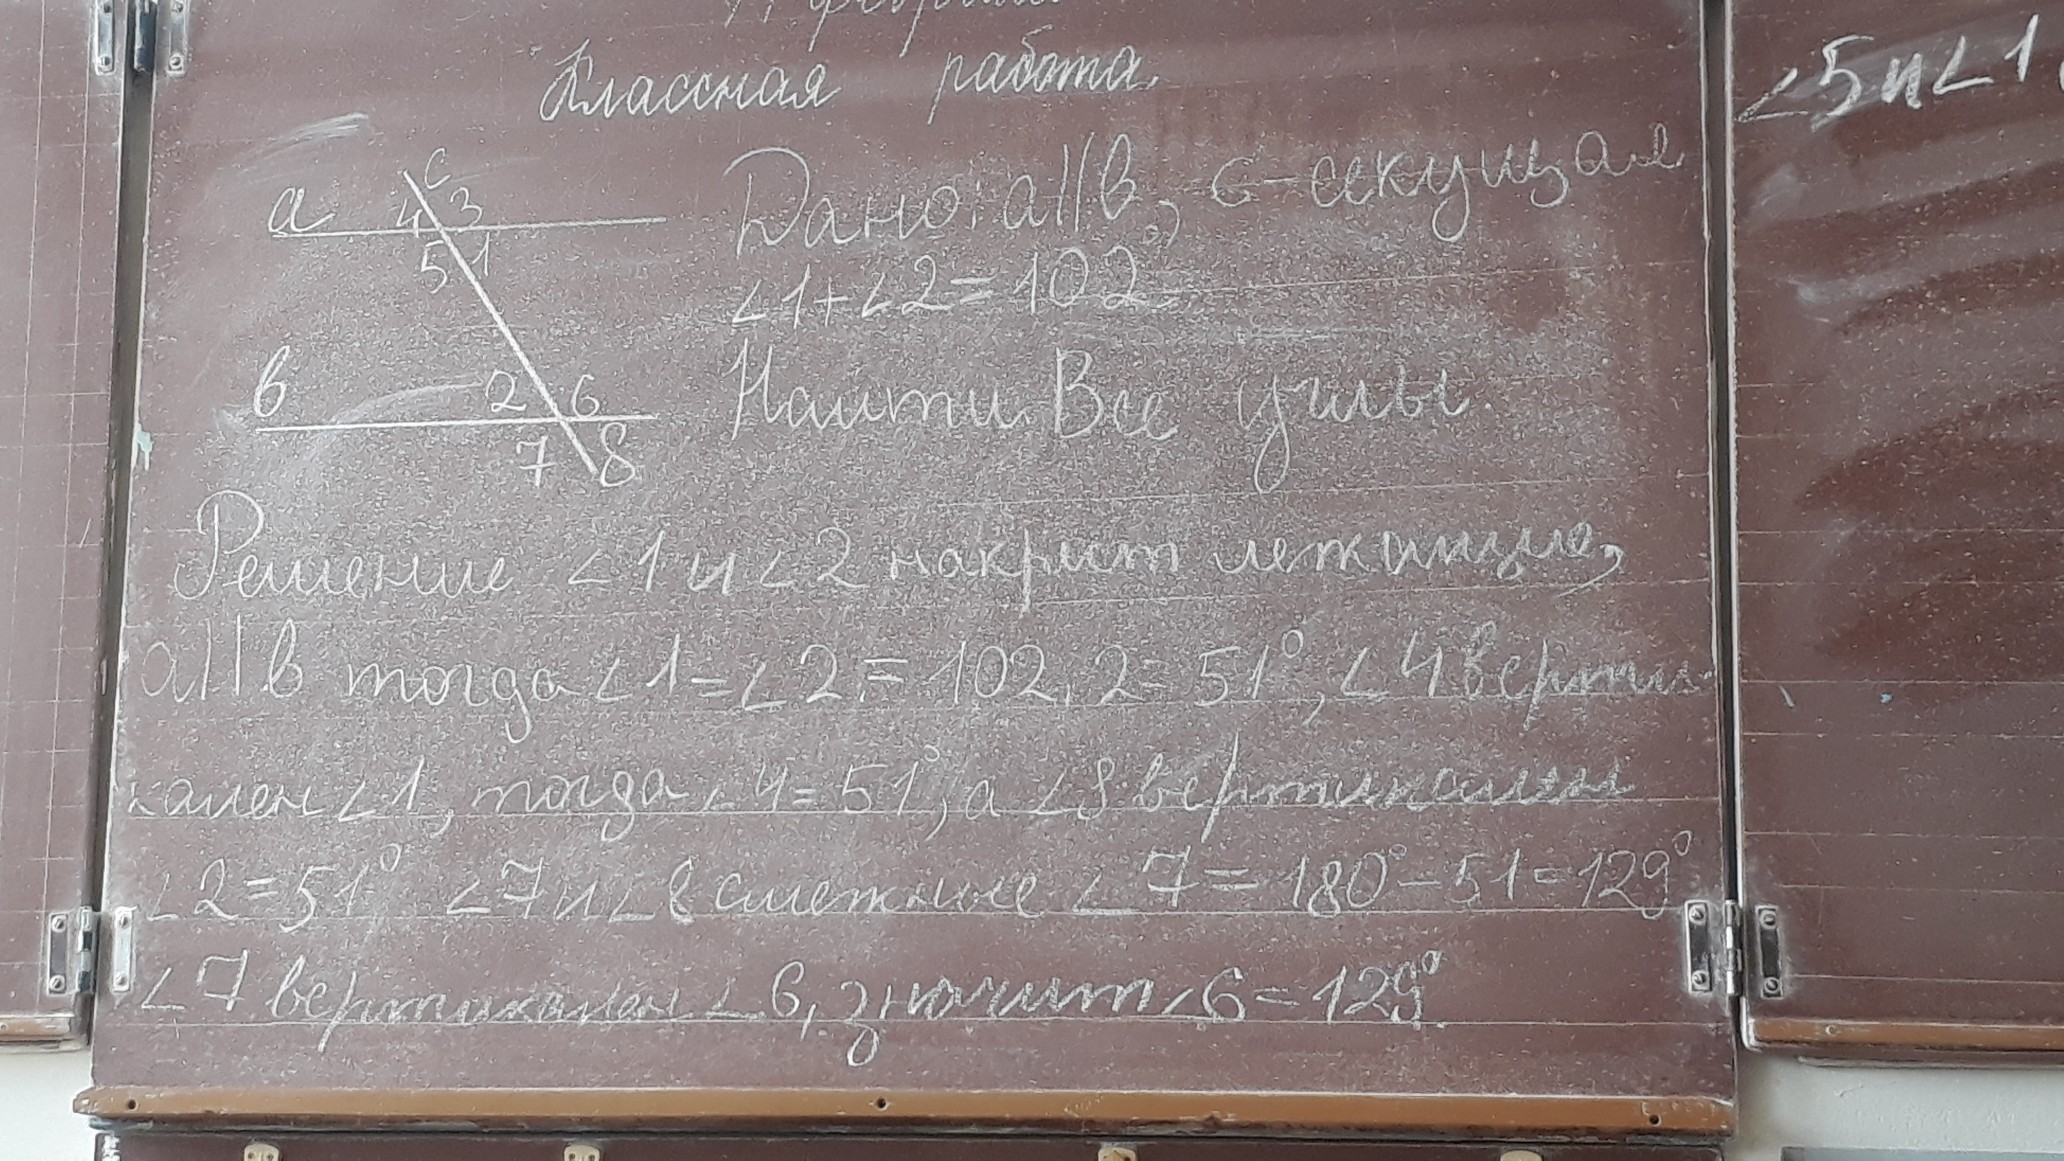 Классная работа.
a
c
4 3
5 1
в
2 6
7 8
Дано: a||в, c-секущая
∠1+∠2=102°.
Наити Все углы.
Решение ∠1 и ∠2 накрест лежащие,
a||в тогда ∠1=∠2=102:2=51°, ∠4 верти-
кален ∠1, тогда ∠4=51°, а ∠8 вертикален
∠2=51° ∠7 и ∠8 смежные ∠7=180°-51=129°
∠7 вертикален ∠6, значит ∠6=129°.
∠5 и ∠1